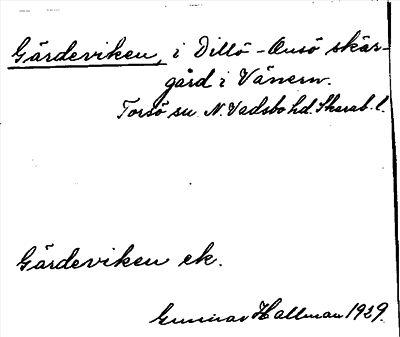 Gärdeviken, i Dillö-Onsö skär-
gård i Vänern.
Torsö sn. N. Vadsbo hd. Skarab. l.
Gärdeviken ek.
Gunnar Hallman 1929.